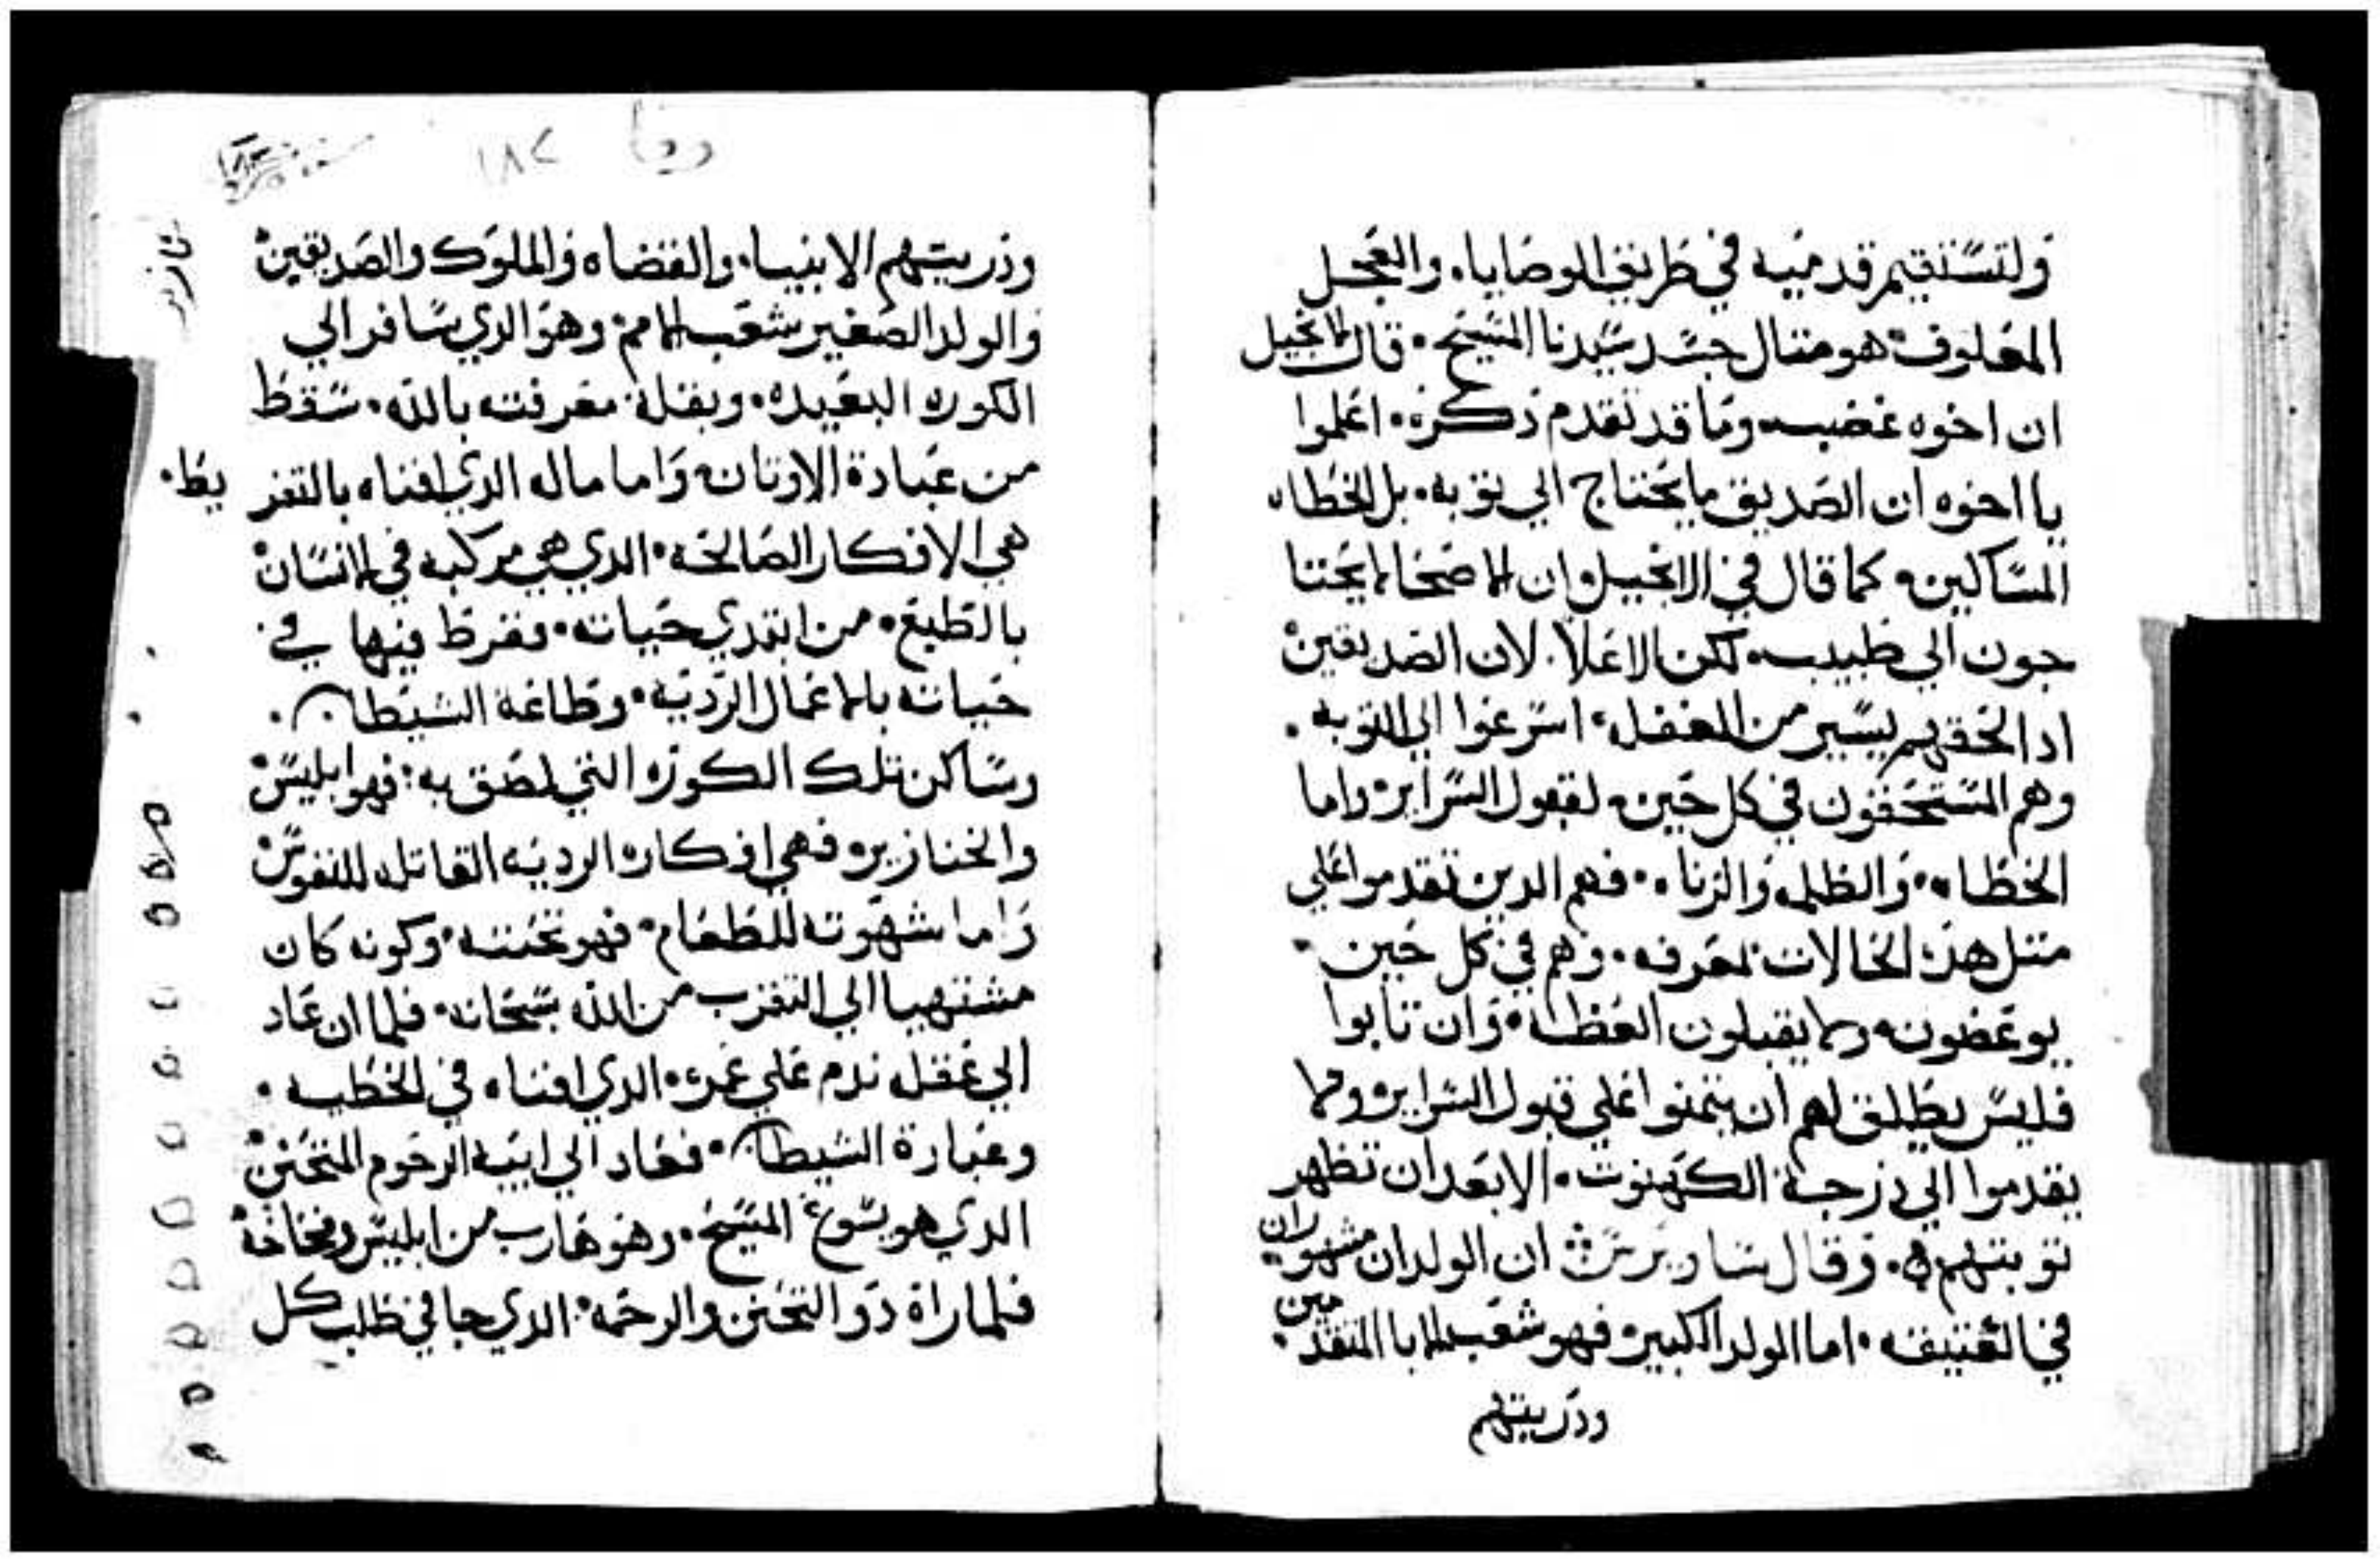 ولتستقيم قدميه في طريق الوصايا. والعجل
المعلوف هو متال جسد سيدنا المسيح. قال الانجيل
ان اخوه غضب وما قد تقدم ذكره. اعلموا
يا اخوه ان الصديق ما يحتاج الي توبه. بل الخطاه
المساكين كما قال في الانجيل وان الاصحا لا يحتا
جون الي طبيب لكن الاعلا. لان الصديقين
ادا لحقهم يسير من الغفله اسرعوا الي التوبه.
وهم المستحقون في كل حين لقبول السراير واما
الخطاه. والظلمه والزناه. فهم الدين تقدموا علي
متل هده الحالات بمعرفه. وهم في كل حين.
يوعضون ولا يقبلون العظه. وان تابوا
فليس يطلق لهم ان يتمنوا علي قبول السراير ولا
يقدموا الي درجة الكهنوت. الا بعد ان تظهر
توبتهم. وقال ساويرس ان الولدان مشهوران
في العتيقه. اما الولد الكبير فهو شعب الابا المتقدمين.
ودريتهم
دفنا ١٨٢
ودريتهم الانبياء والقضاه والملوك والصديقين
والولد الصغير شعب الامم وهو الدي سافر الي
الكوره البعيده. وبقلة معرفته بالله. سقط
من عبادة الاوتان واما ماله الدي افناه بالتفر يط.
هي الافكار الصالحه. الدي هي مركبه في الانسان
بالطبع. من ابتدي حياته. ففرط فيها في.
حياته بالاعمال الرديه. وطاعة الشيطان.
وساكن تلك الكوره التي لصق به فهو ابليس
والخنازير فهي افكاره الرديه القاتله للنفوس
واما شهوته للطعام. فهو تحننه. وكونه كان
مشتهيا الي التقرب من الله سبحانه. فلما ان عاد
الي عقله ندم علي عمره. الدي افناه في الخطيه.
وعبادة الشيطان. فعاد الي ابيه الرحوم المتحنن
الدي هو يسوع المسيح. وهو هارب من ابليس وفخاخه
فلما راه دو التحنن والرحمه. الدي جا في طلب كل